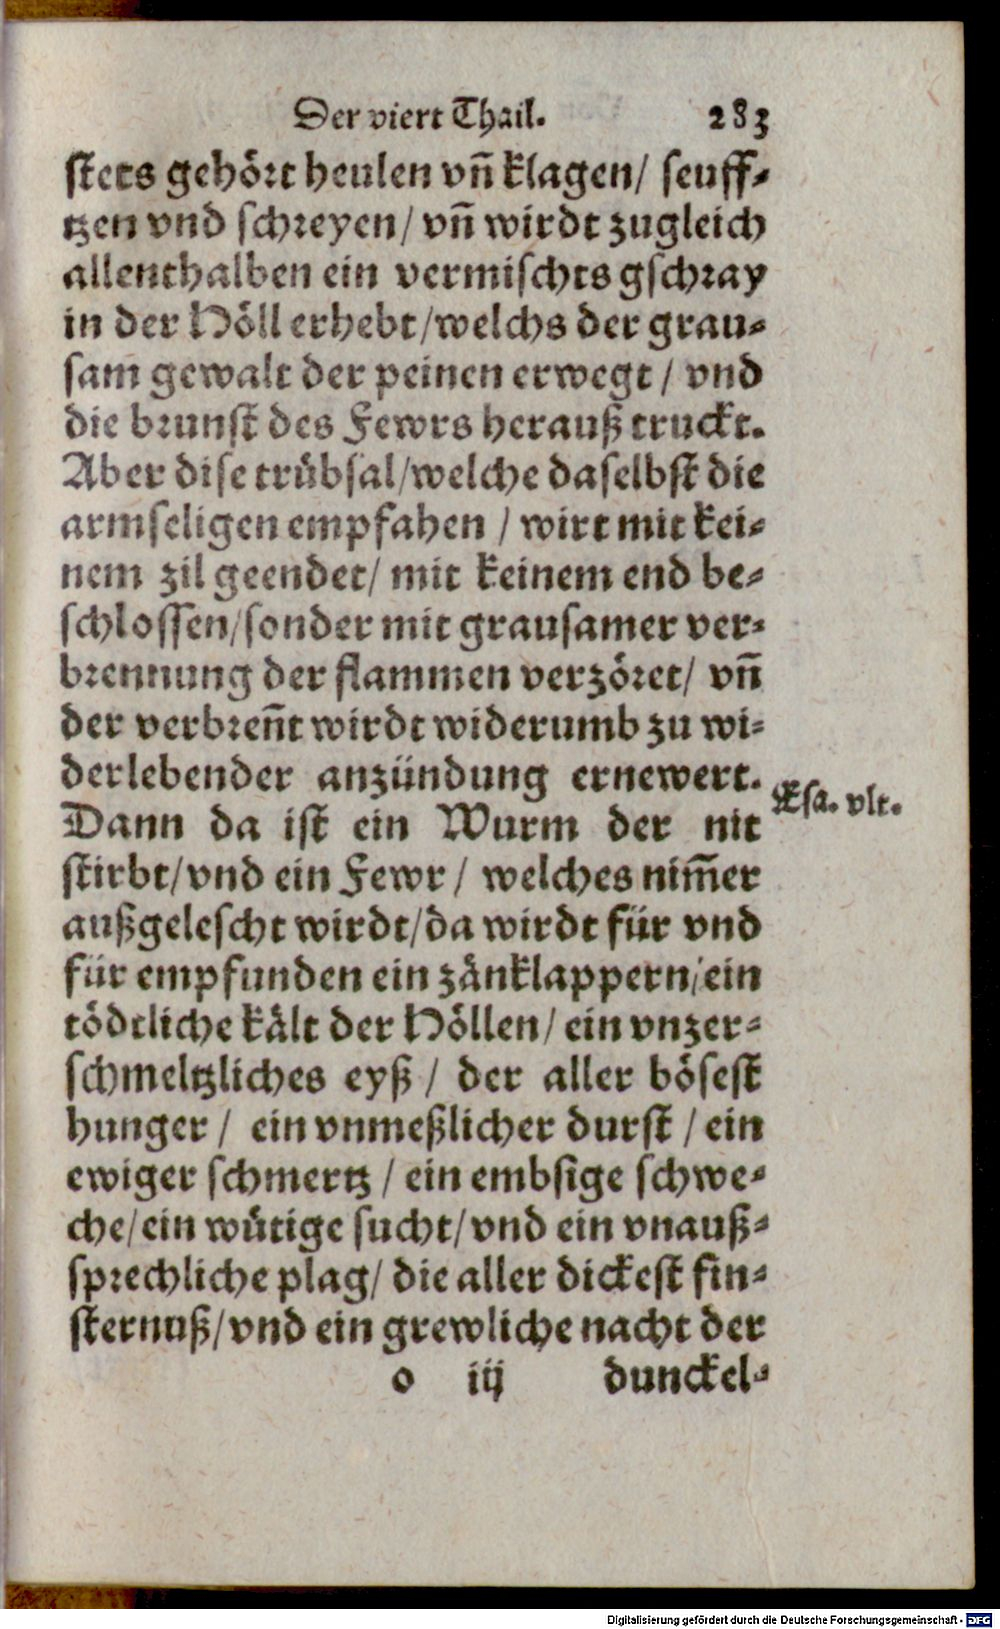 Der viert Thail. 283
stets gehört heulen vñ klagen/ seuff-
tzen vnd schreyen/ vñ wirdt zugleich
allenthalben ein vermischts gschray
in der Höll erhebt/welchs der grau-
sam gewalt der peinen erwegt/ vnd
die brunst des Fewrs herauß truckt.
Aber dise trübsal/welche daselbst die
armseligen empfahen / wirt mit kei-
nem zil geendet/ mit keinem end be-
schlossen/sonder mit grausamer ver-
brennung der flammen verzöret/ vñ
der verbreñt wirdt widerumb zu wi-
derlebender anzündung ernewert.
Dann da ist ein Wurm der nit
Esa. vlt.
stirbt/vnd ein Fewr / welches nim̃er
außgelescht wirdt/da wirdt für vnd
für empfunden ein zänklappern/ein
tödtliche kält der Höllen/ ein vnzer-
schmeltzliches eyß / der aller bösest
hunger / ein vnmeßlicher durst / ein
ewiger schmertz / ein embsige schwe-
che/ein wütige sucht/vnd ein vnauß-
sprechliche plag/ die aller dickest fin-
sternuß/vnd ein grewliche nacht der
o iij dunckel-
Digitalisierung gefördert durch die Deutsche Forschungsgemeinschaft - DFG